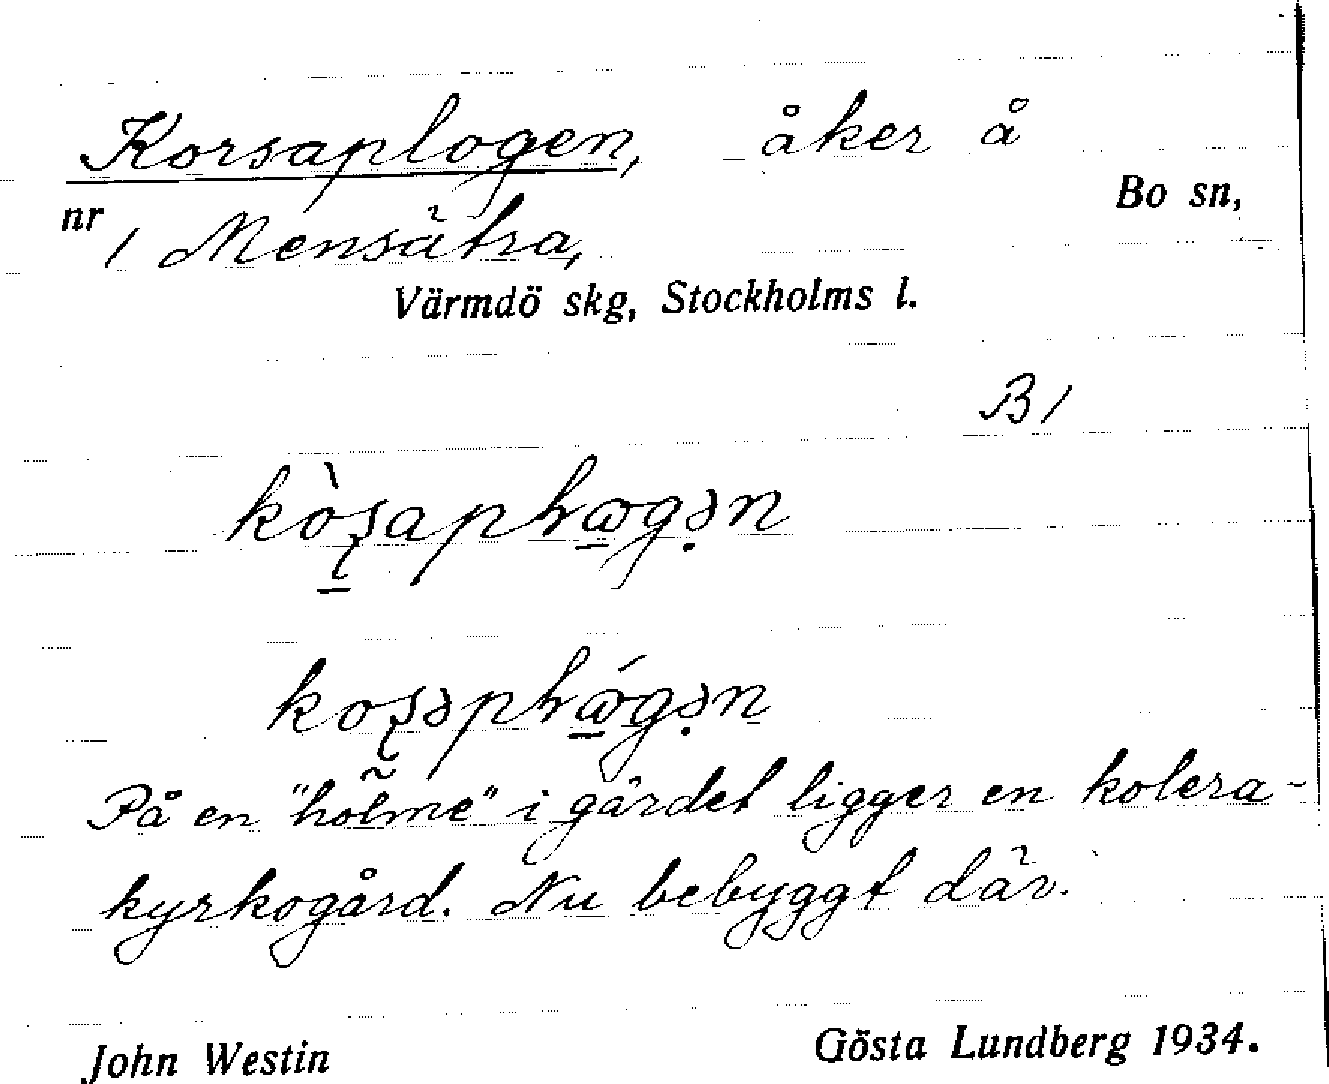 Korsaplogen, åker å
Bo sn,
nr 1 Mensätra,
Värmdö skg, Stockholms l.
B1
På en "holme" i gärdet ligger en kolera-
kyrkogård. Nu bebyggt där.
John Westin Gösta Lundberg 1934.